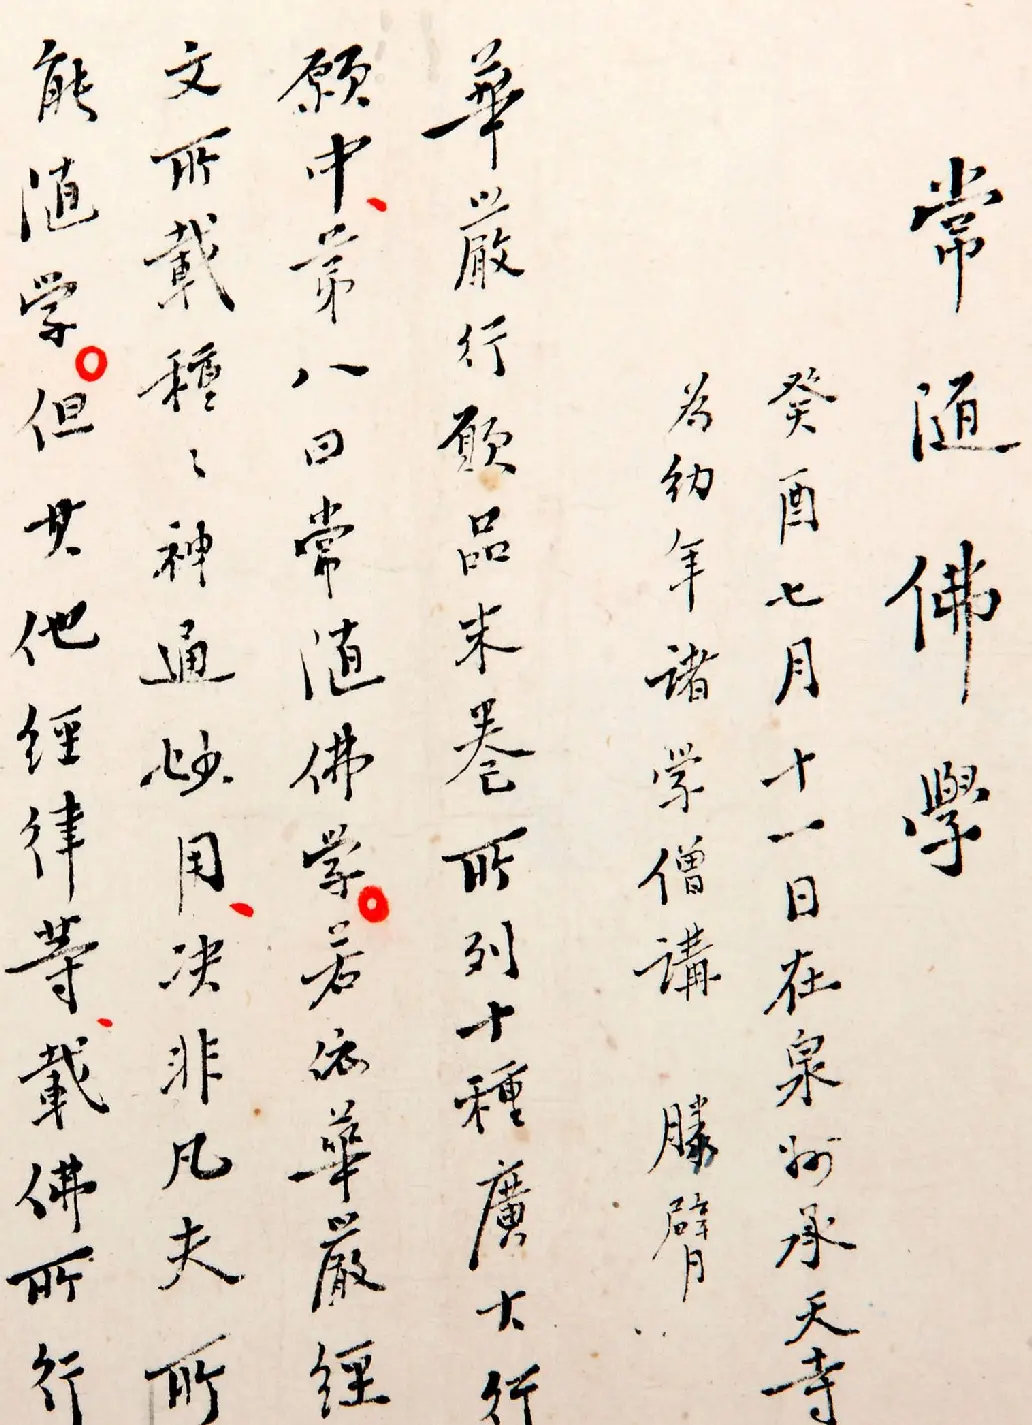 常隨佛學
癸酉七月十一日在泉州承天寺
為幼年諸学僧講 勝臂
華嚴行願品末卷所列十種廣大行
願中、第八曰常随佛学。若依華嚴經
文所載種〻神通妙用、决非凡夫所
能随学。但其他經律等、載佛所行